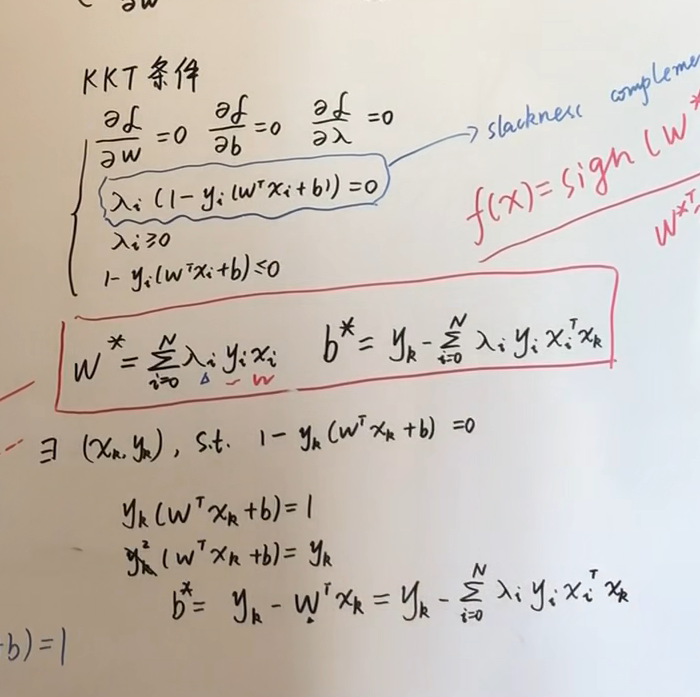 ∂w
KKT 条件
∂L/∂w =0 ∂L/∂b =0 ∂L/∂λ =0
λᵢ (1- yᵢ(wᵀxᵢ+b))=0
slackness compleme
λᵢ≥0
f(x)=sign(w*
1- yᵢ(wᵀxᵢ+b)≤0
w*ᵀ
w* = Σᵢ₌₀ᴺ λᵢ yᵢ xᵢ b* = yₖ- Σᵢ₌₀ᴺ λᵢ yᵢ xᵢᵀxₖ
∃ (xₖ,yₖ), s.t. 1- yₖ(wᵀxₖ+b) =0
yₖ(wᵀxₖ+b)=1
yₖ²(wᵀxₖ+b)=yₖ
b*= yₖ- wᵀxₖ = yₖ- Σᵢ₌₀ᴺ λᵢ yᵢ xᵢᵀ xₖ
b)=1